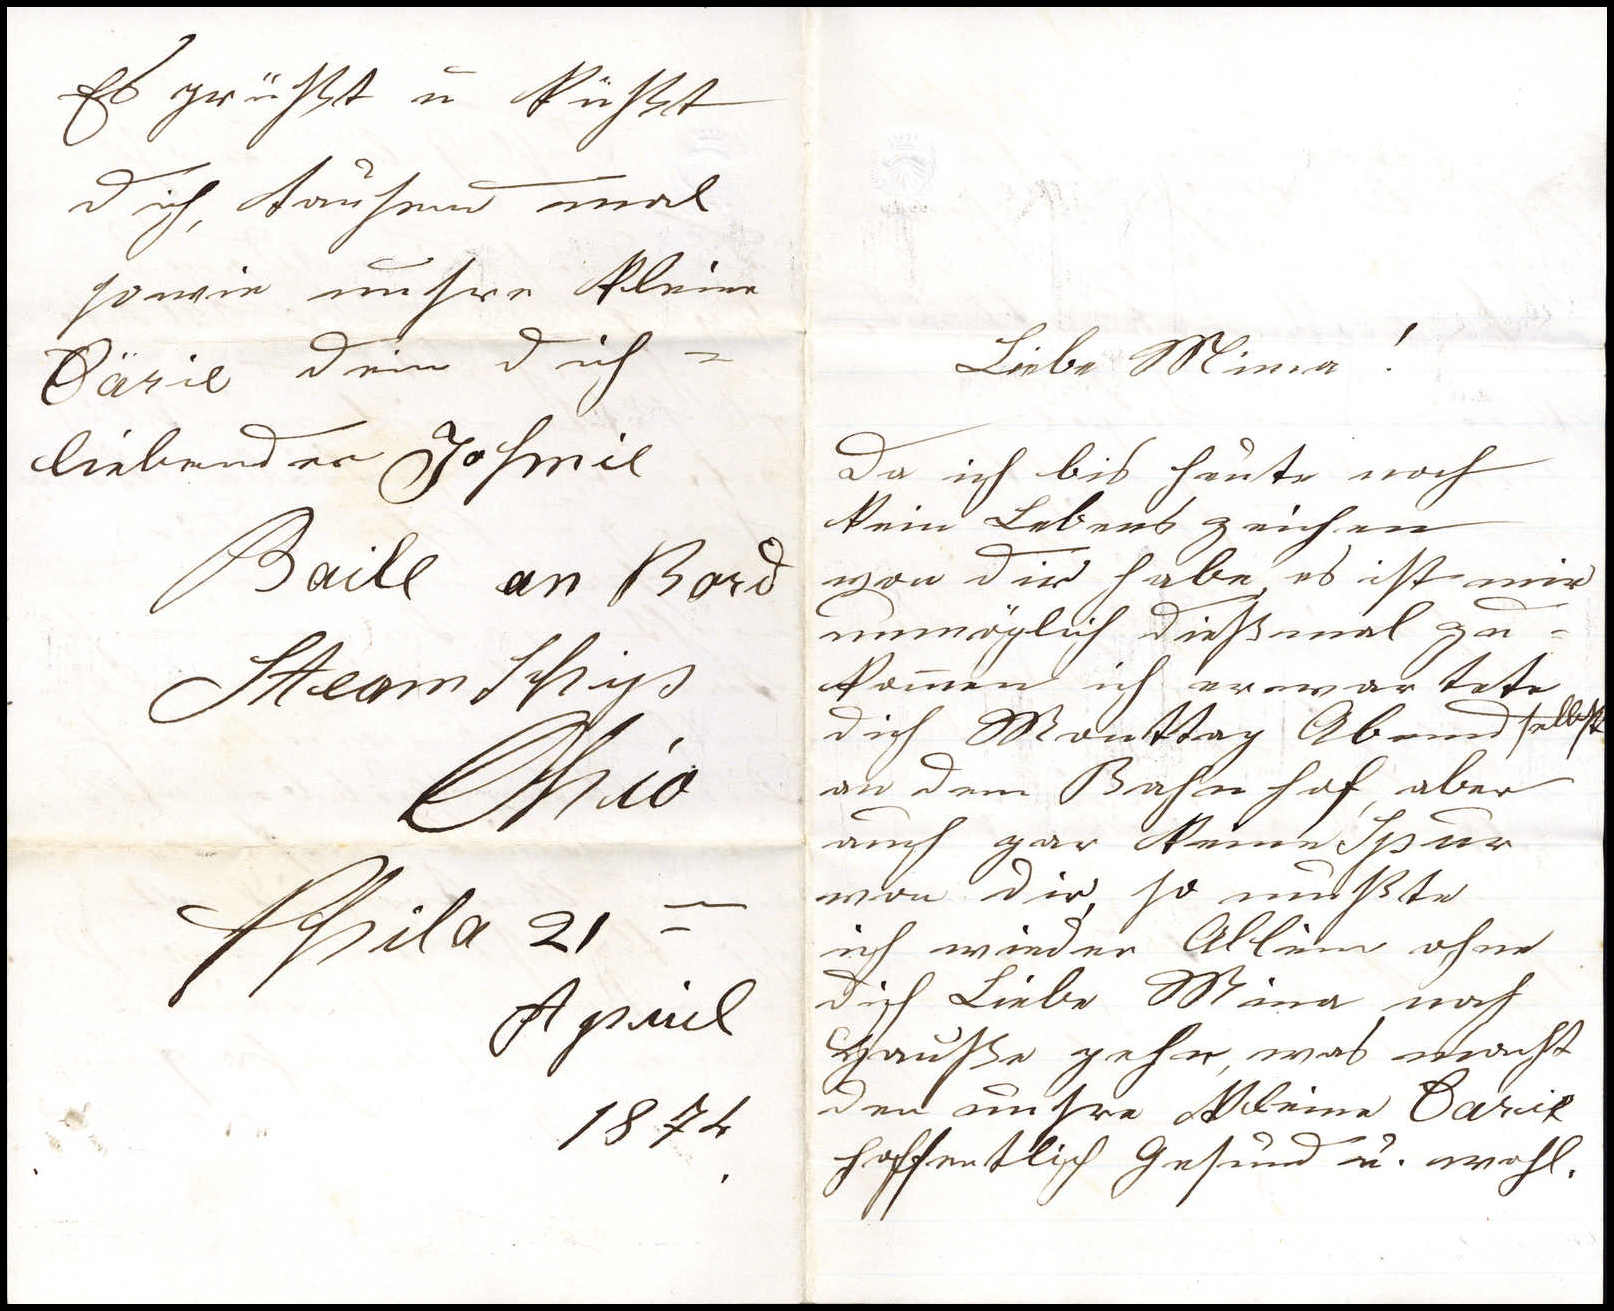 Liebe Mina!
Da ich bis heute noch
kein Lebens zeichen
von dir habe, es ist mir
unmöglich dießmal zu=
kommen ich erwartete
dich Monttag Abend selbst
an dem Bahn hof, aber
auch gar keine Spur
von dir, so mußte
ich wieder Allein ohne
dich Liebe Mina nach
Hauße gehn, was macht
den unsre kleine Carie
hoffentlich Gesund u. wohl.
Es grüßt u küßt
dich, tausend mal
sowie unsre kleine
Carie dein dich=
liebender
Baile an Bord
Steam Schips
Ohio
Phila 21
April
1874.